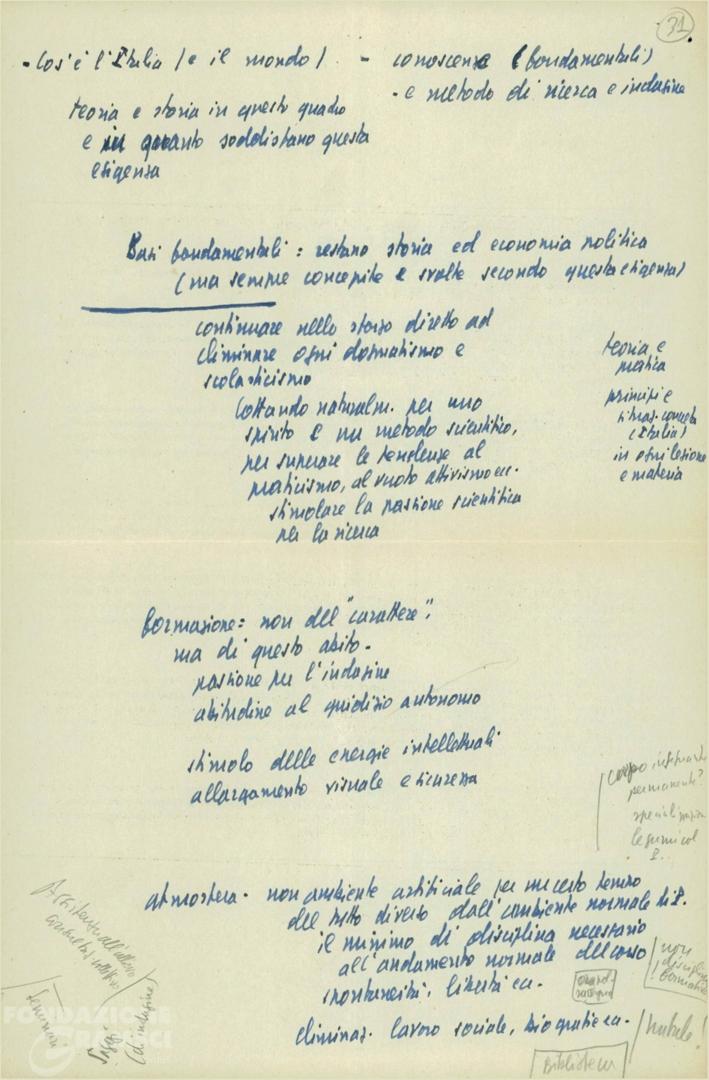 31
- Cos'è l'Italia (e il mondo) - conoscenze (fondamentali)
- e metodo di ricerca e indagine
teoria e storia in questo quadro
e in quanto soddisfano questa
esigenza
Basi fondamentali : restano storia ed economia politica
(ma sempre concepite e svolte secondo questa esigenza)
continuare nello sforzo diretto ad
eliminare ogni dogmatismo e
scolasticismo
lottando naturalm. per uno
spirito e un metodo scientifico,
per superare le tendenze al
praticismo, al vuoto attivismo ecc.
stimolare la passione scientifica
per la ricerca
teoria e
pratica
principi e
situaz. concreta
(Italia)
in ogni lezione
e materia
formazione : non del "carattere",
ma di questo abito -
passione per l'indagine
abitudine al giudizio autonomo
stimolo delle energie intellettuali
allargamento visuale e sicurezza
corpo insegnante
permanente?
atmosfera - non ambiente artificiale per un certo tempo
del tutto diverso dall'ambiente normale di P.
il minimo di disciplina necessario
all'andamento normale del corso
spontaneità, libertà ecc.
eliminaz. lavoro sociale, biografie ecc.
non
disciplina
formativa
Biblioteca
Assistente all'allievo
Seminari
Saggi
(di indagine)
FONDAZIONE
GRAMSCI